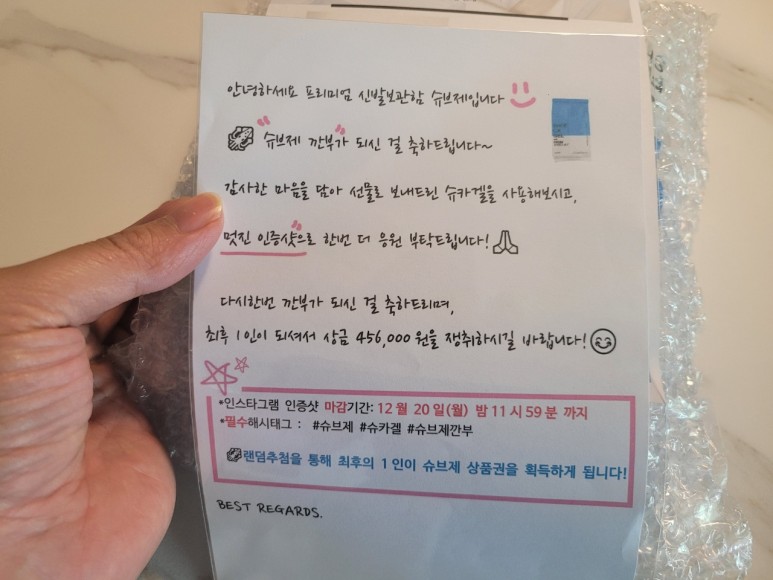 안녕하세요 프리미엄 신발보관함 슈브제입니다
슈브제 깐부가 되신 걸 축하드립니다~
감사한 마음을 담아 선물로 보내드린 슈카겔을 사용해보시고,
멋진 인증샷으로 한번 더 응원 부탁드립니다!
다시한번 깐부가 되신 걸 축하드리며,
최후 1인이 되셔서 상금 456,000원을 쟁취하시길 바랍니다!
•인스타그램 인증샷 마감기간: 12월 20일(월) 밤 11시 59분 까지
•필수해시태그 : #슈브제 #슈카겔 #슈브제깐부
랜덤추첨을 통해 최후의 1인이 슈브제 상품권을 획득하게 됩니다!
BEST REGARDS.